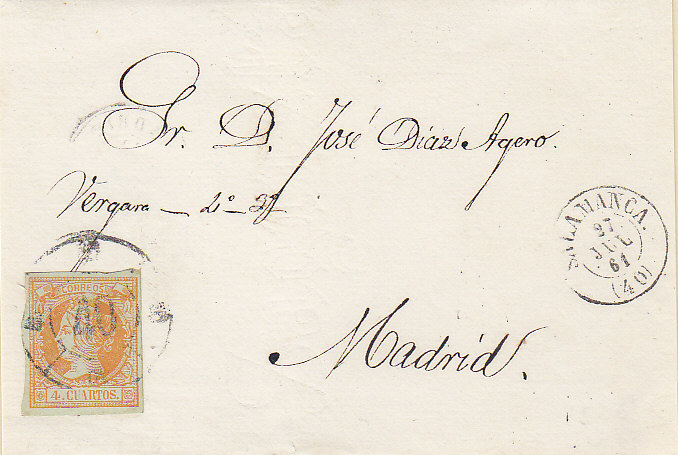 Sr. D. José Díaz Agero.
Vergara — 2º
Madrid.
SALAMANCA.
27
JUL
61
(40)
CORREOS
40
4. CUARTOS.